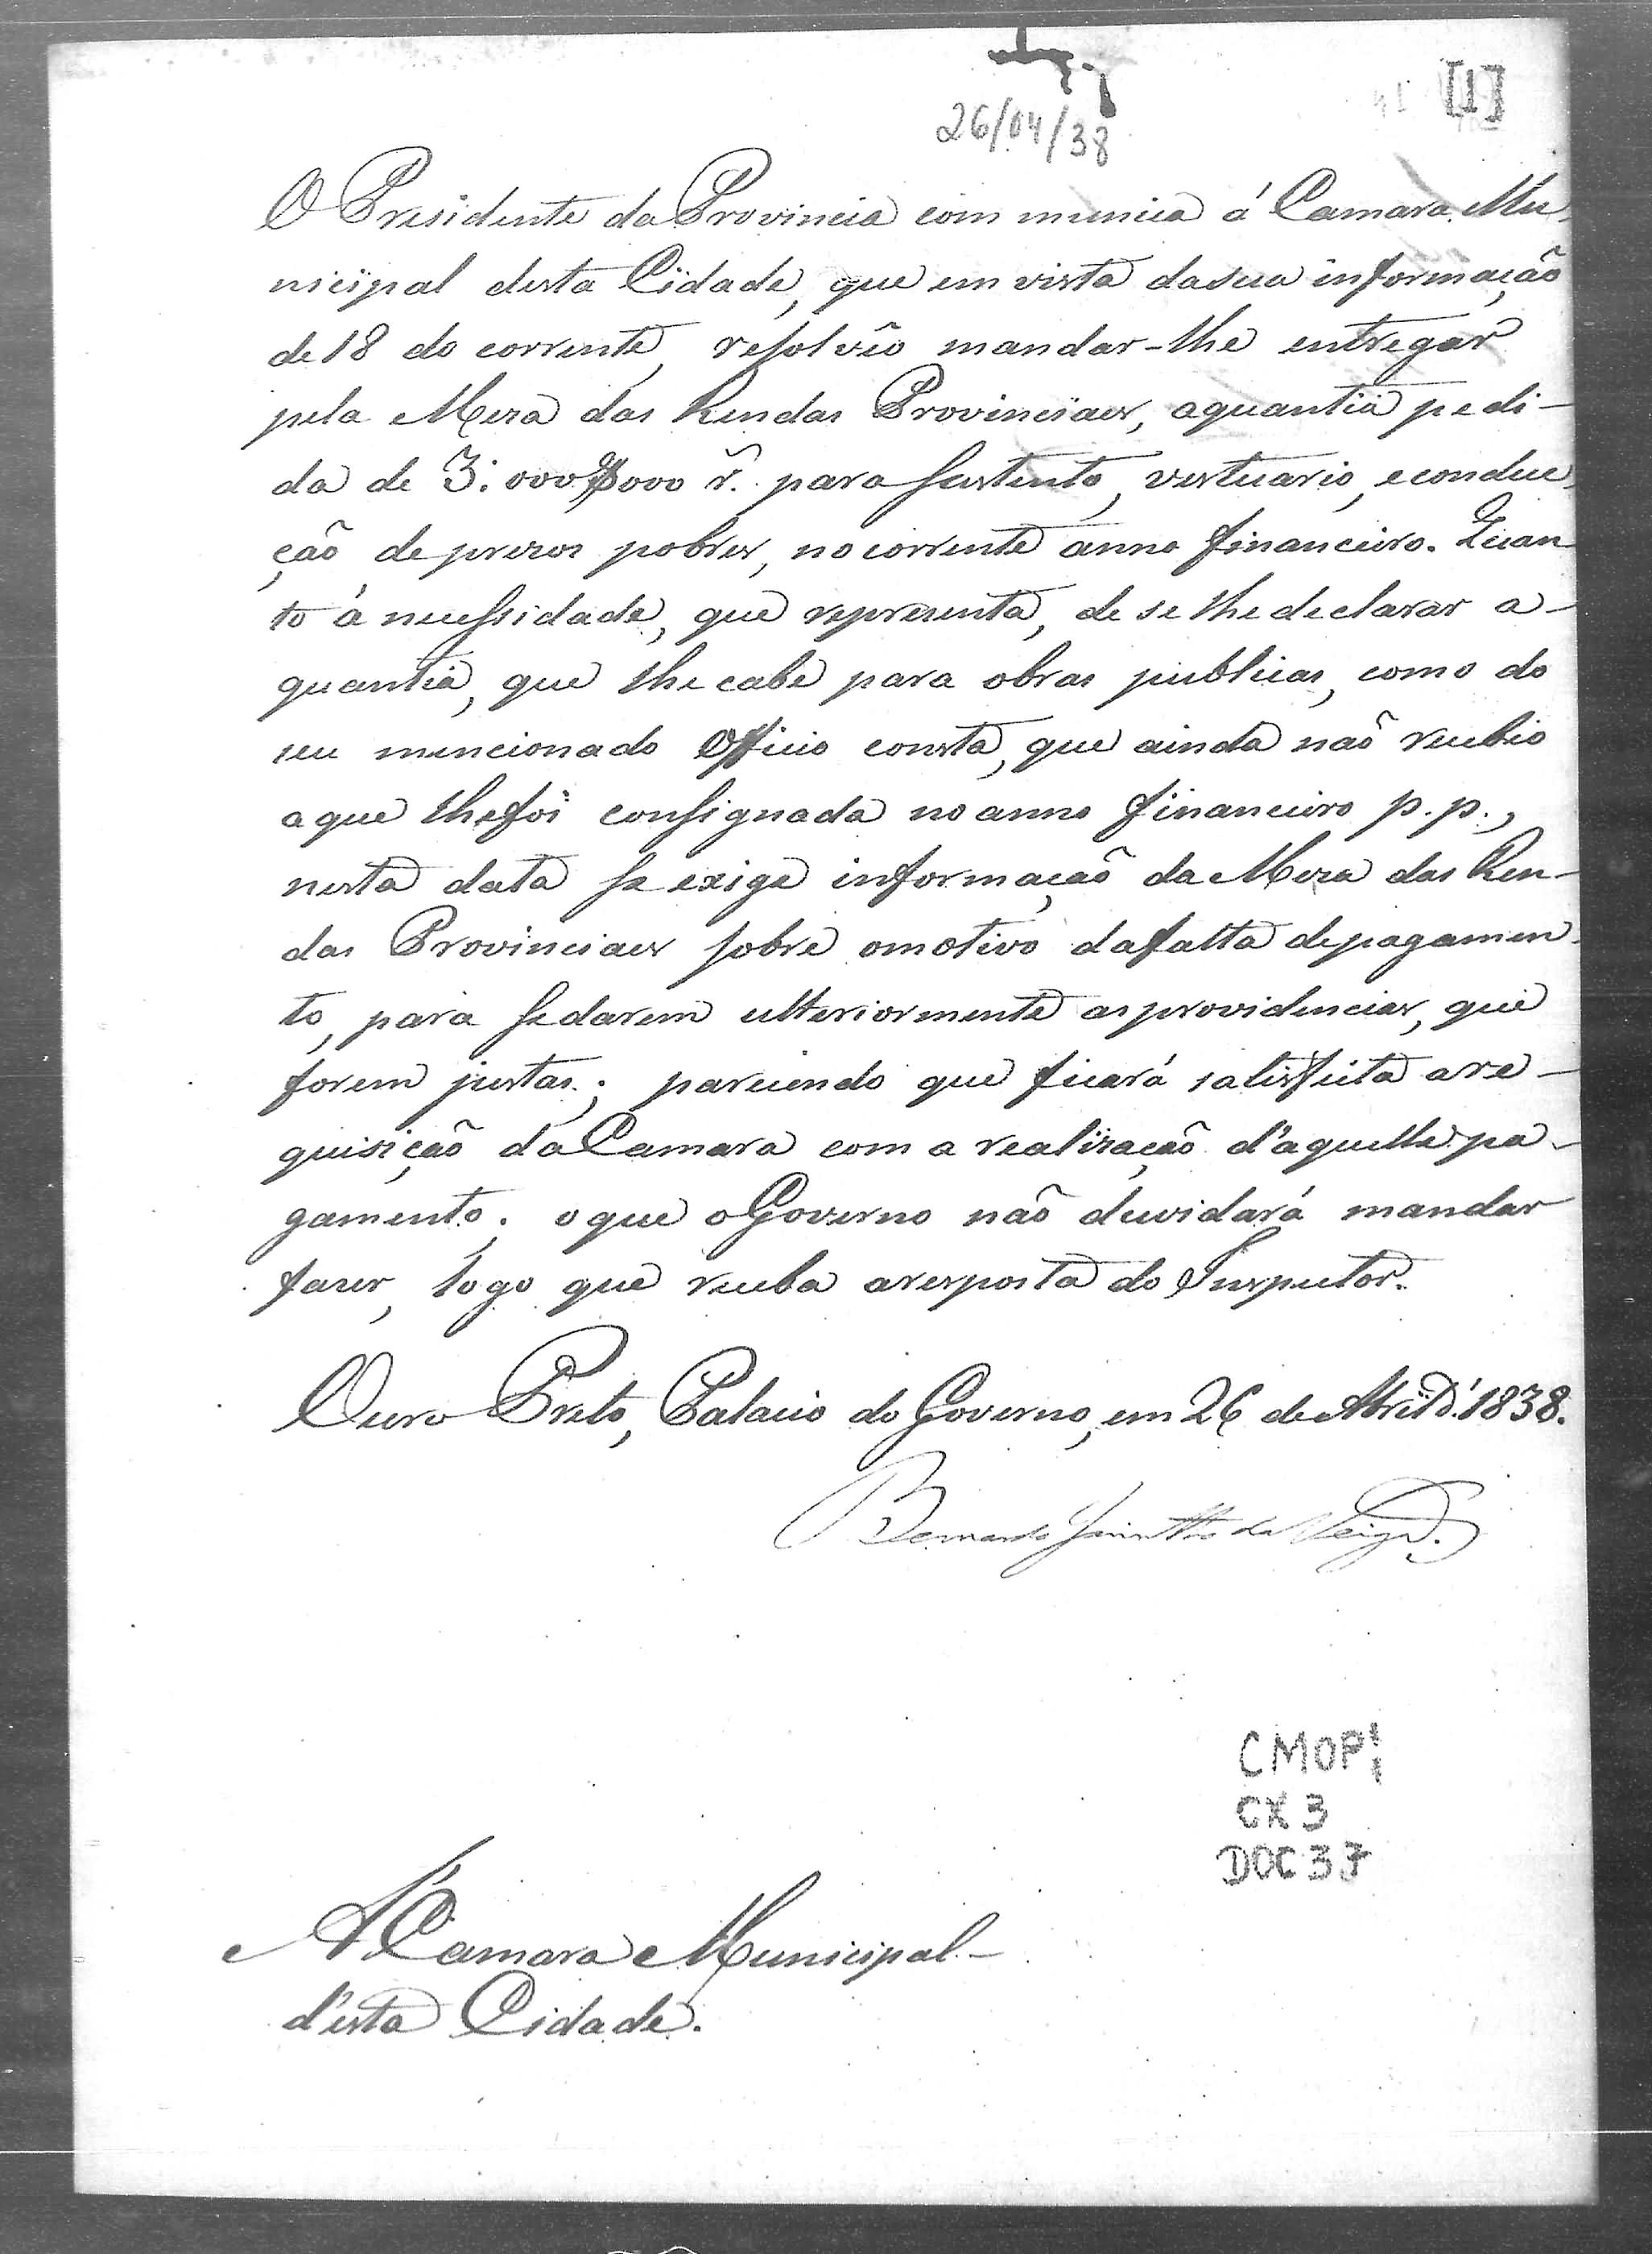 26/04/38
[1]
O Presidente da Provincia communica á Camara Mu-
nicipal desta Cidade, que em vista da sua informação
de 18 do corrente, resolvêo mandar-lhe entregar
pela Meza das Rendas Provinciaes, a quantia pedi-
da de 3:000$000 r.^ para sustento, vestuario, e conduc-
ção de prezos pobres, no corrente anno financeiro. Quan-
to á necessidade, que representa, de se lhe declarar a
quantia, que lhe cabe para obras publicas, como do
seu mencionado Officio consta, que ainda não recebeo
a que lhe foi consignada no anno financeiro p.p.,
nesta data se exige informação da Meza das Ren-
das Provinciaes sobre o motivo da falta de pagamen-
to, para se darem ulteriormente as providencias, que
forem justas; parecendo que ficará satisfeita a re-
quisição da Camara com a realização d'aquelle pa-
gamento; o que o Governo não duvidará mandar
fazer, logo que receba a resposta do Inspector.
Ouro Preto, Palacio do Governo, em 26 de Abril d' 1838.
Bernardo Jacintho da Veiga.
CMOP
CX 3
DOC 37
Á Camara Municipal
d'esta Cidade.